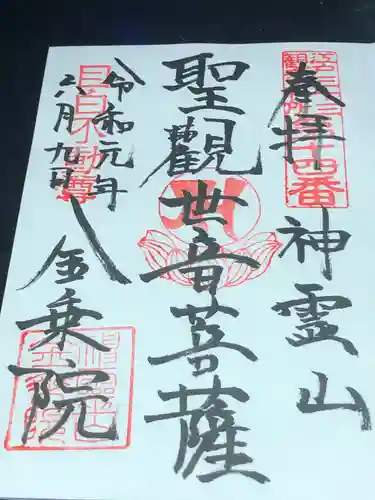 奉拝
神霊山
聖観世音菩薩
令和元年
六月九日
金乗院
目白不動尊